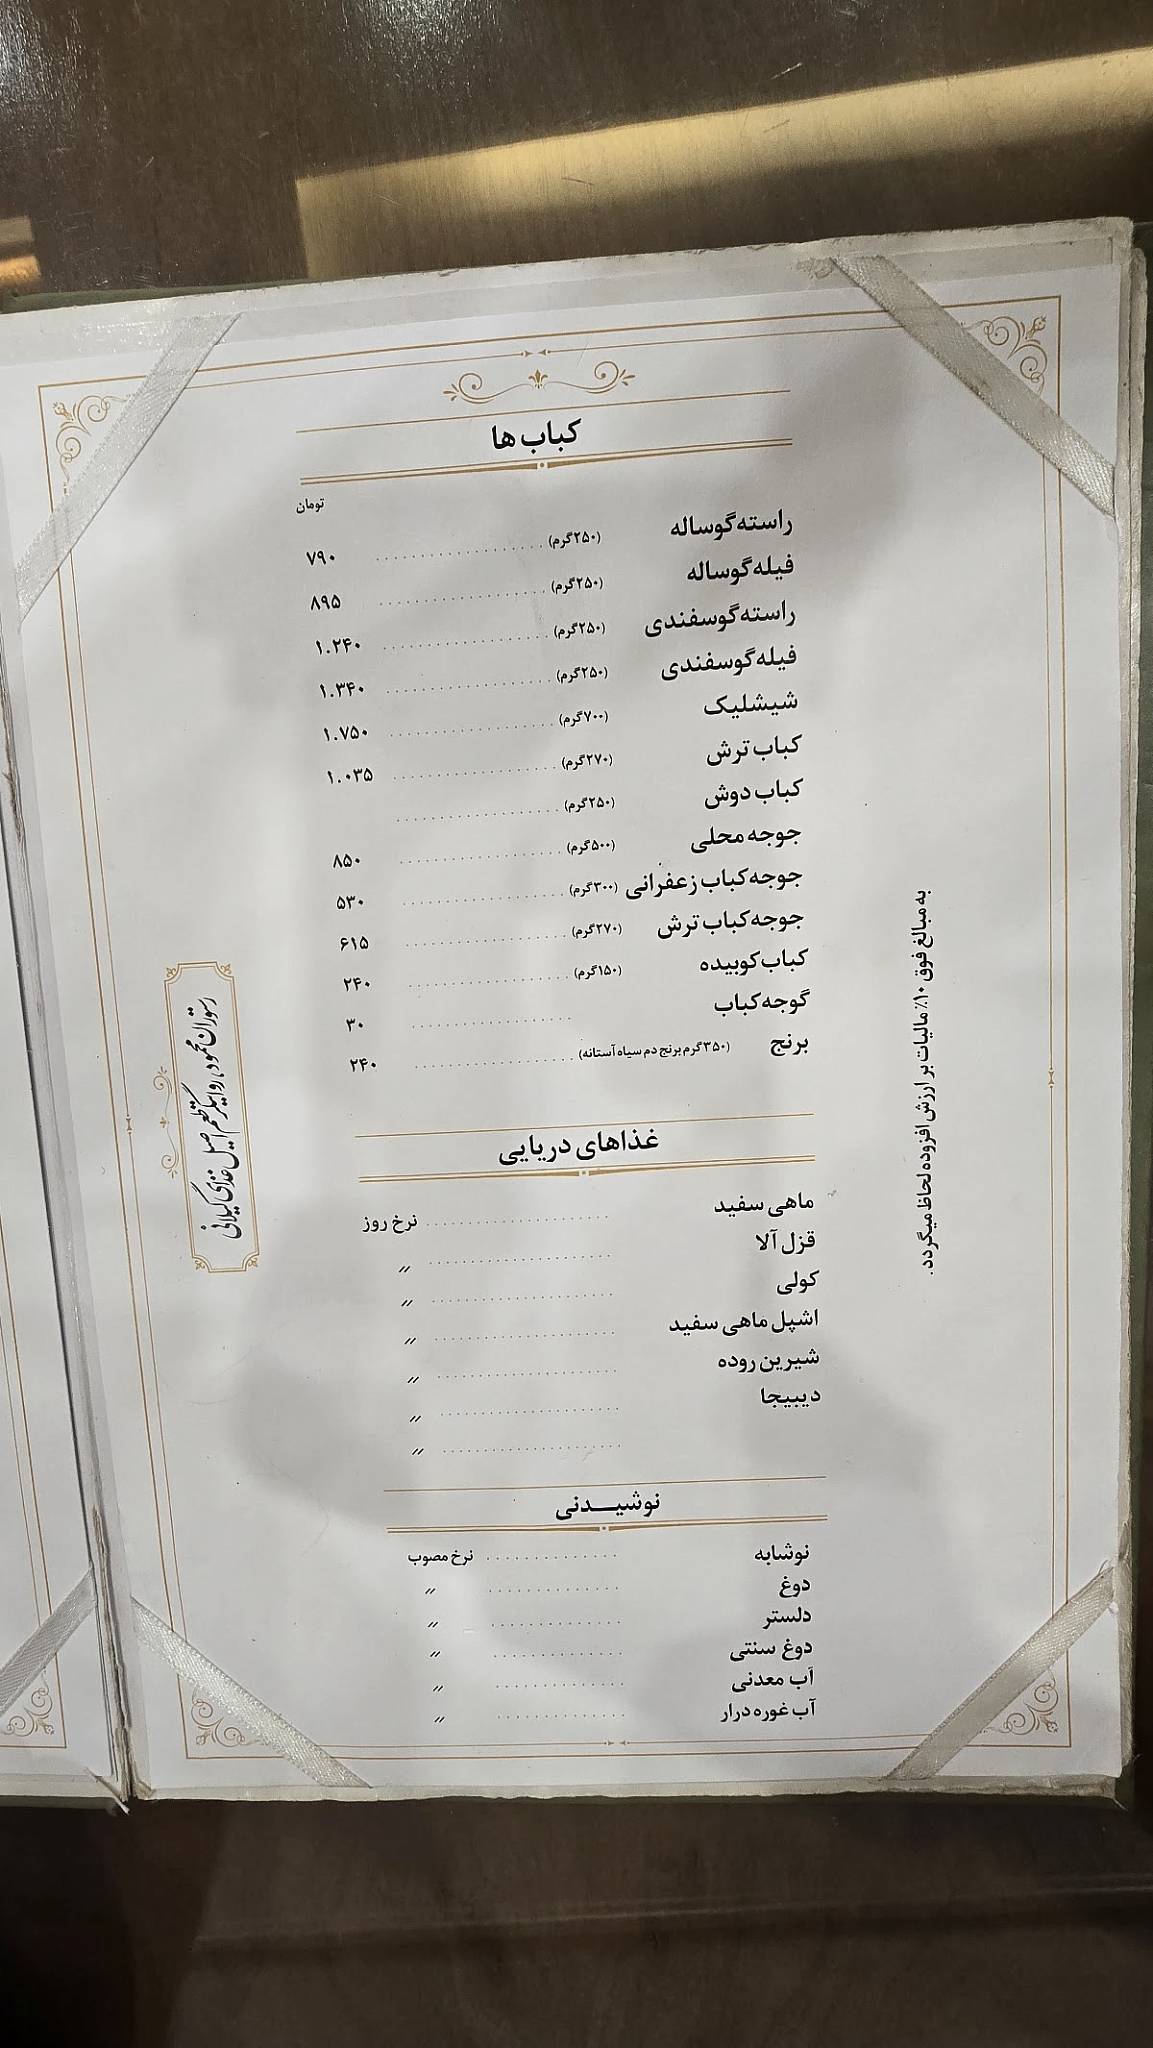 کباب ها
تومان
راسته گوساله (۲۵۰گرم) ۷۹۰
فیله گوساله (۲۵۰گرم) ۸۹۵
راسته گوسفندی (۲۵۰گرم) ۱.۲۴۰
فیله گوسفندی (۲۵۰گرم) ۱.۳۴۰
شیشلیک (۷۰۰گرم) ۱.۷۵۰
کباب ترش (۲۷۰گرم) ۱.۰۳۵
کباب دوش (۲۵۰گرم)
جوجه محلی (۵۰۰گرم) ۸۵۰
جوجه کباب زعفرانی (۳۰۰گرم) ۵۳۰
جوجه کباب ترش (۲۷۰گرم) ۶۱۵
کباب کوبیده (۱۵۰گرم) ۲۴۰
گوجه کباب ۳۰
برنج (۳۵۰گرم برنج دم سیاه آستانه) ۲۴۰
غذاهای دریایی
ماهی سفید نرخ روز
قزل آلا 〃
کولی 〃
اشپل ماهی سفید 〃
شیرین روده 〃
دیبیجا 〃
〃
نوشیدنی
نوشابه نرخ مصوب
دوغ 〃
دلستر 〃
دوغ سنتی 〃
آب معدنی 〃
آب غوره درار 〃
به مبالغ فوق ۱۰٪ مالیات بر ارزش افزوده لحاظ میگردد.
رستوران محمود، روایتگر طعم اصیل غذای گیلانی